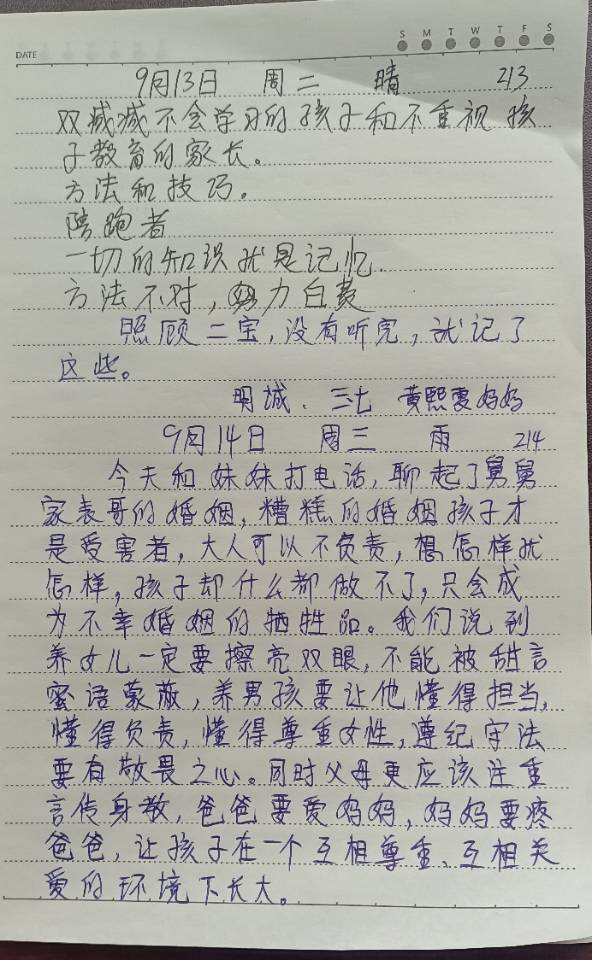 S M T W T F S
DATE
9月13日 周二 晴 213
双减减不会学习的孩子和不重视孩
子教育的家长。
方法和技巧。
陪跑者
一切的知识就是记忆.
方法不对,努力白费
照顾二宝,没有听完,就记了
这些。
明城、三七 黄熙雯妈妈
9月14日 周三 雨 214
今天和妹妹打电话,聊起了舅舅
家表哥的婚姻,糟糕的婚姻孩子才
是受害者,大人可以不负责,想怎样就
怎样,孩子却什么都做不了,只会成
为不幸婚姻的牺牲品。我们说到
养女儿一定要擦亮双眼,不能被甜言
蜜语蒙蔽,养男孩要让他懂得担当,
懂得负责,懂得尊重女性,遵纪守法
要有敬畏之心。同时父母更应该注重
言传身教,爸爸要爱妈妈,妈妈要疼
爸爸,让孩子在一个互相尊重、互相关
爱的环境下长大。